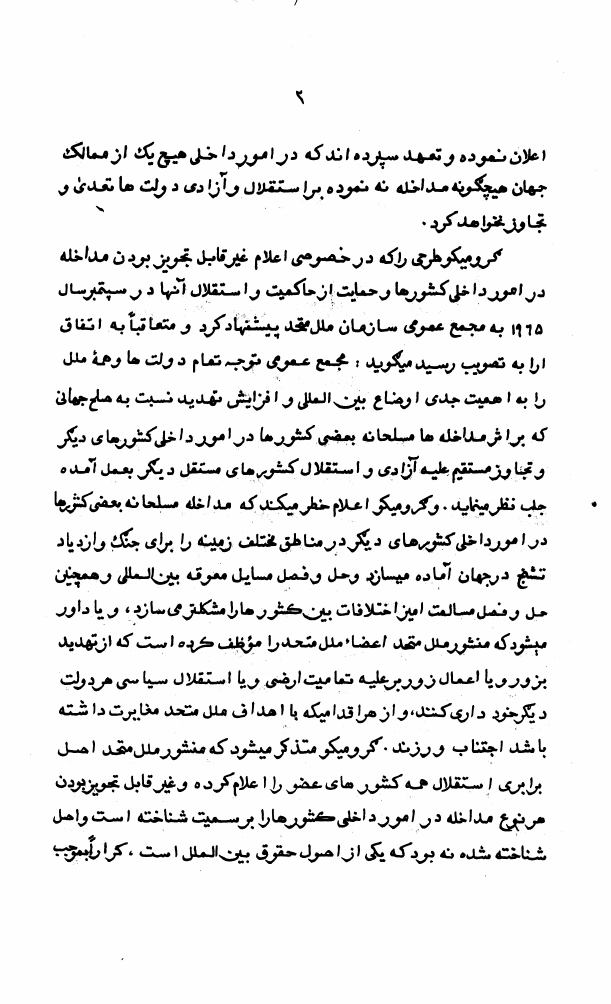 ٢
اعلان نموده و تعهد سپرده اند که در امور داخلی هیچ یک از ممالک
جهان هیچگونه مداخله نه نموده بر استقلال و آزادی دولت ها تعدی و
تجاوز نخواهد کرد.
گرومیکو طرحی را که در خصوصی اعلام غیر قابل تجویز بودن مداخله
در امور داخلی کشورها و حمایت از حاکمیت و استقلال آنها در سپتمبر سال
۱۹۶۵ به مجمع عمومی سازمان ملل متحد پیشنهاد کرد و متعاقباً به اتفاق
ارا به تصویب رسید میگوید : مجمع عمومی توجه تمام دولت ها و همهٔ ملل
را به اهمیت جدی اوضاع بین المللی و افزایش تهدید نسبت به صلح جهانی
که بر اثر مداخله ها مسلحانه بعضی کشورها در امور داخلی کشورهای دیگر
و تجاوز مستقیم علیه آزادی و استقلال کشورهای مستقل دیگر بعمل آمده
جلب نظر مینماید. و گرومیکو اعلام خطر میکند که مداخله مسلحانه بعضی کشورها
در امور داخلی کشورهای دیگر در مناطق مختلف زمینه را برای جنگ و ازدیاد
تشنج در جهان آماده میسازد و حل و فصل مسایل معوقه بین المللی و همچنین
حل و فصل مسالمت امیز اختلافات بین کشورها را مشکلتر می سازد، و یاد اور
میشود که منشور ملل متحد اعضاء ملل متحد را مؤظف کرده است که از تهدید
بزور و یا اعمال زور بر علیه تمامیت ارضی و یا استقلال سیاسی هر دولت
دیگر خود داری کنند، و از هر اقدامیکه با اهداف ملل متحد مغایرت داشته
باشد اجتناب ورزند. گرومیکو متذکر میشود که منشور ملل متحد اصل
برابری استقلال همه کشورهای عضو را اعلام کرده و غیر قابل تجویز بودن
هر نوع مداخله در امور داخلی کشورها را برسمیت شناخته است و اصل
شناخته شده نه بود که یکی از اصول حقوق بین الملل است، کرارأ بموجب